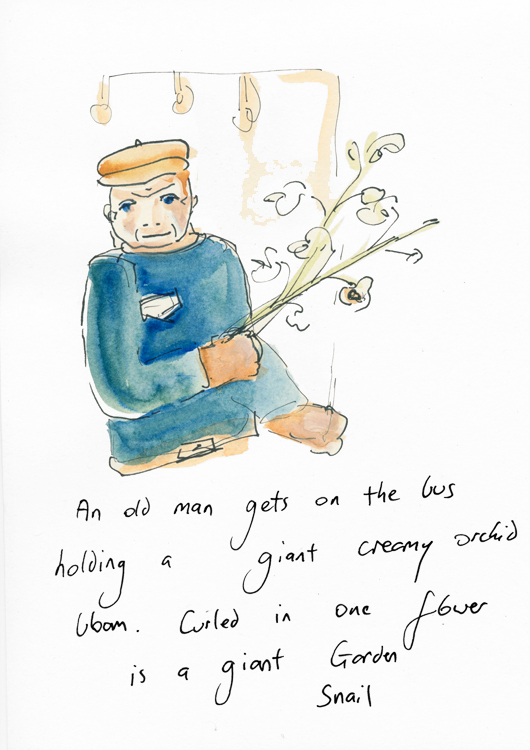 An old man gets on the bus
holding a giant creamy orchid
bloom. Curled in one flower
is a giant Garden
Snail